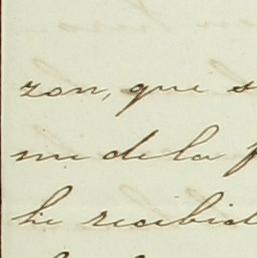 zon, que s
me de la p
he recibid